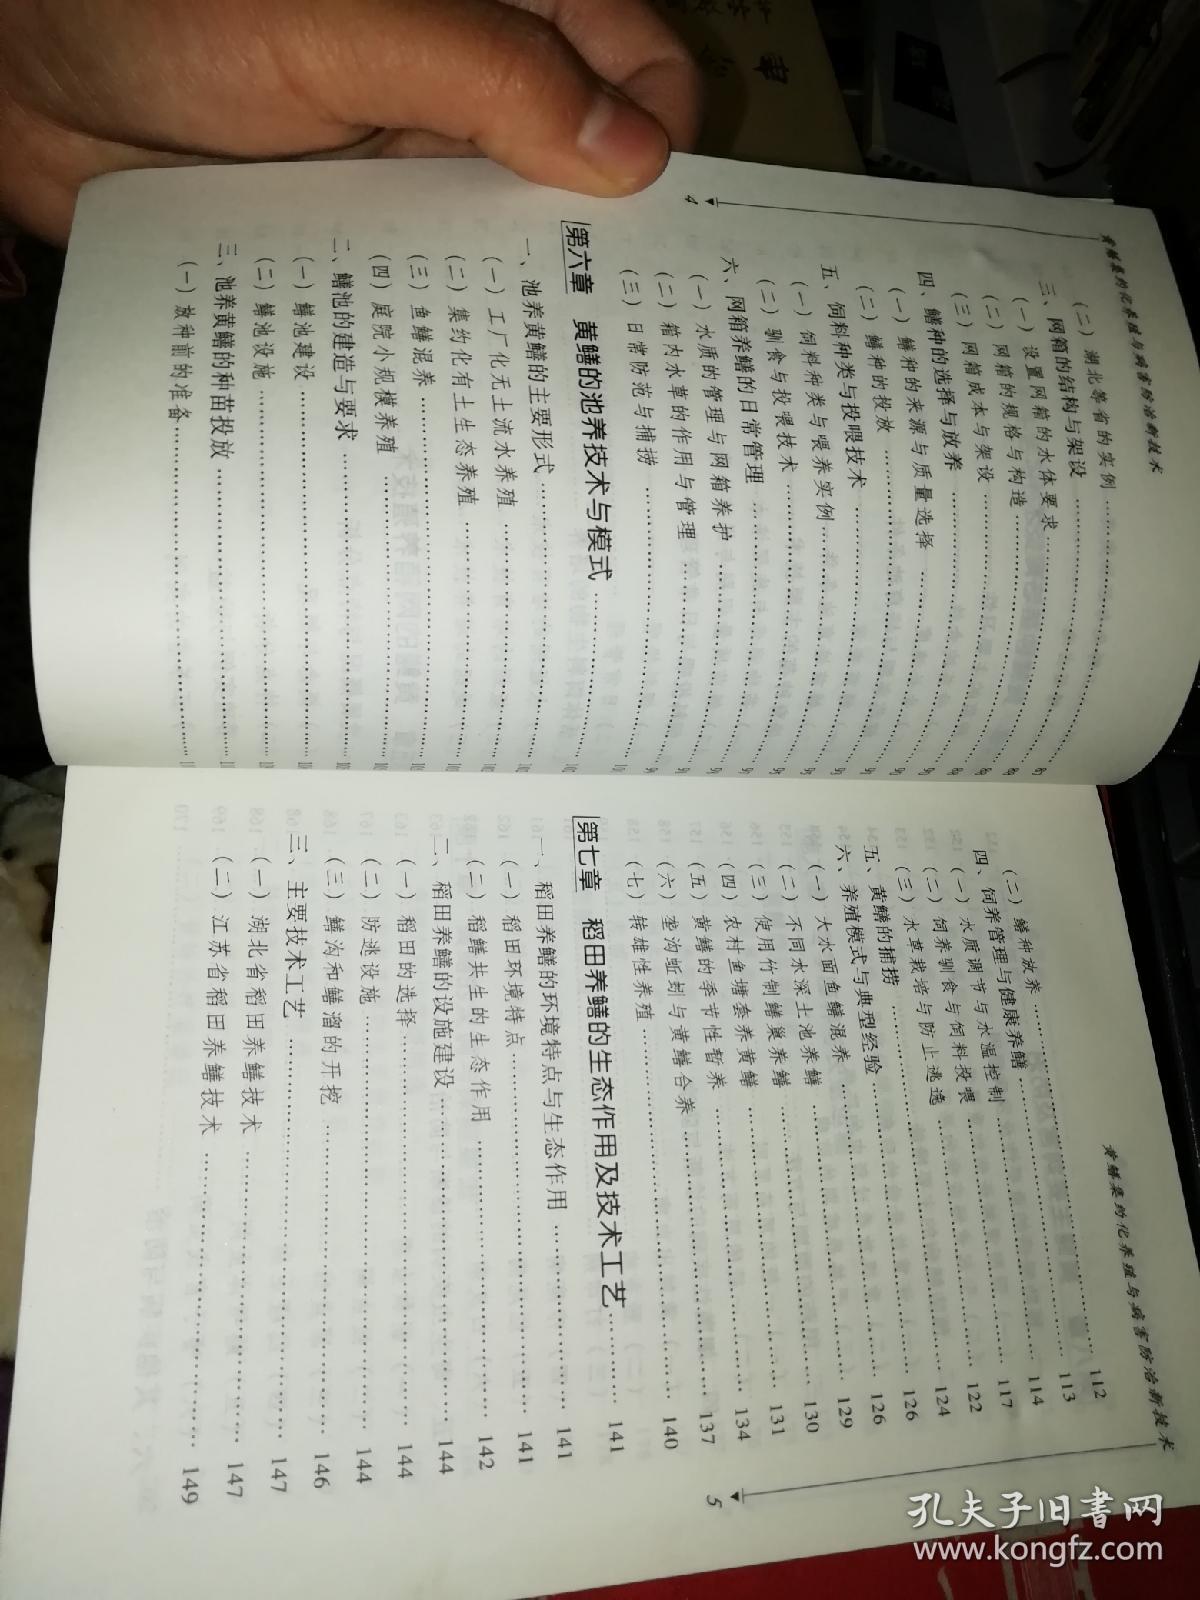 黄鳝集约化养殖与病害防治新技术
（二）湖北等省的实例
三、网箱的结构与架设
（一）设置网箱的水体要求
（二）网箱的规格与构造
（三）网箱成本与架设
四、鳝种的选择与放养
（一）鳝种的来源与质量选择
（二）鳝种的投放
五、饲料种类与投喂技术
（一）饲料种类与喂养实例
（二）驯食与投喂技术
六、网箱养鳝的日常管理
（一）水质的管理与网箱养护
（二）箱内水草的作用与管理
（三）日常防范与捕捞
第六章 黄鳝的池养技术与模式
一、池养黄鳝的主要形式
（一）工厂化无土流水养殖
（二）集约化有土生态养殖
（三）鱼鳝混养
（四）庭院小规模养殖
二、鳝池的建造与要求
（一）鳝池建设
（二）鳝池设施
三、池养黄鳝的种苗投放
（一）放种前的准备
4
黄鳝集约化养殖与病害防治新技术
（二）鳝种放养 112
四、饲养管理与健康养鳝 113
（一）水质调节与水温控制 114
（二）饲养驯食与饲料投喂 117
（三）水草栽培与防止逃逸 122
五、黄鳝的捕捞 124
六、养殖模式与典型经验 126
（一）大水面鱼鳝混养 126
（二）不同水深土池养鳝 129
（三）使用竹制鳝巢养鳝 130
（四）农村鱼塘套养黄鳝 131
（五）黄鳝的季节性暂养 134
（六）垄沟蚯蚓与黄鳝合养 137
（七）转雄性养殖 140
第七章 稻田养鳝的生态作用及技术工艺 141
一、稻田养鳝的环境特点与生态作用 141
（一）稻田环境特点 141
（二）稻鳝共生的生态作用 142
二、稻田养鳝的设施建设 144
（一）稻田的选择 144
（二）防逃设施 144
（三）鳝沟和鳝溜的开挖 146
三、主要技术工艺 147
（一）湖北省稻田养鳝技术 147
（二）江苏省稻田养鳝技术 149
5
孔夫子旧书网
www.kongfz.com